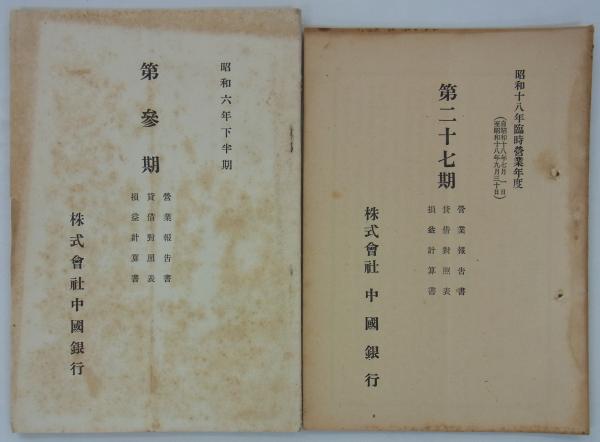 昭和六年下半期
第參期
營業報告書
貸借對照表
損益計算書
株式會社中國銀行
昭和十八年臨時營業年度
（自昭和十八年七月一日
至昭和十八年九月三十日）
第二十七期
營業報告書
貸借對照表
損益計算書
株式會社中國銀行